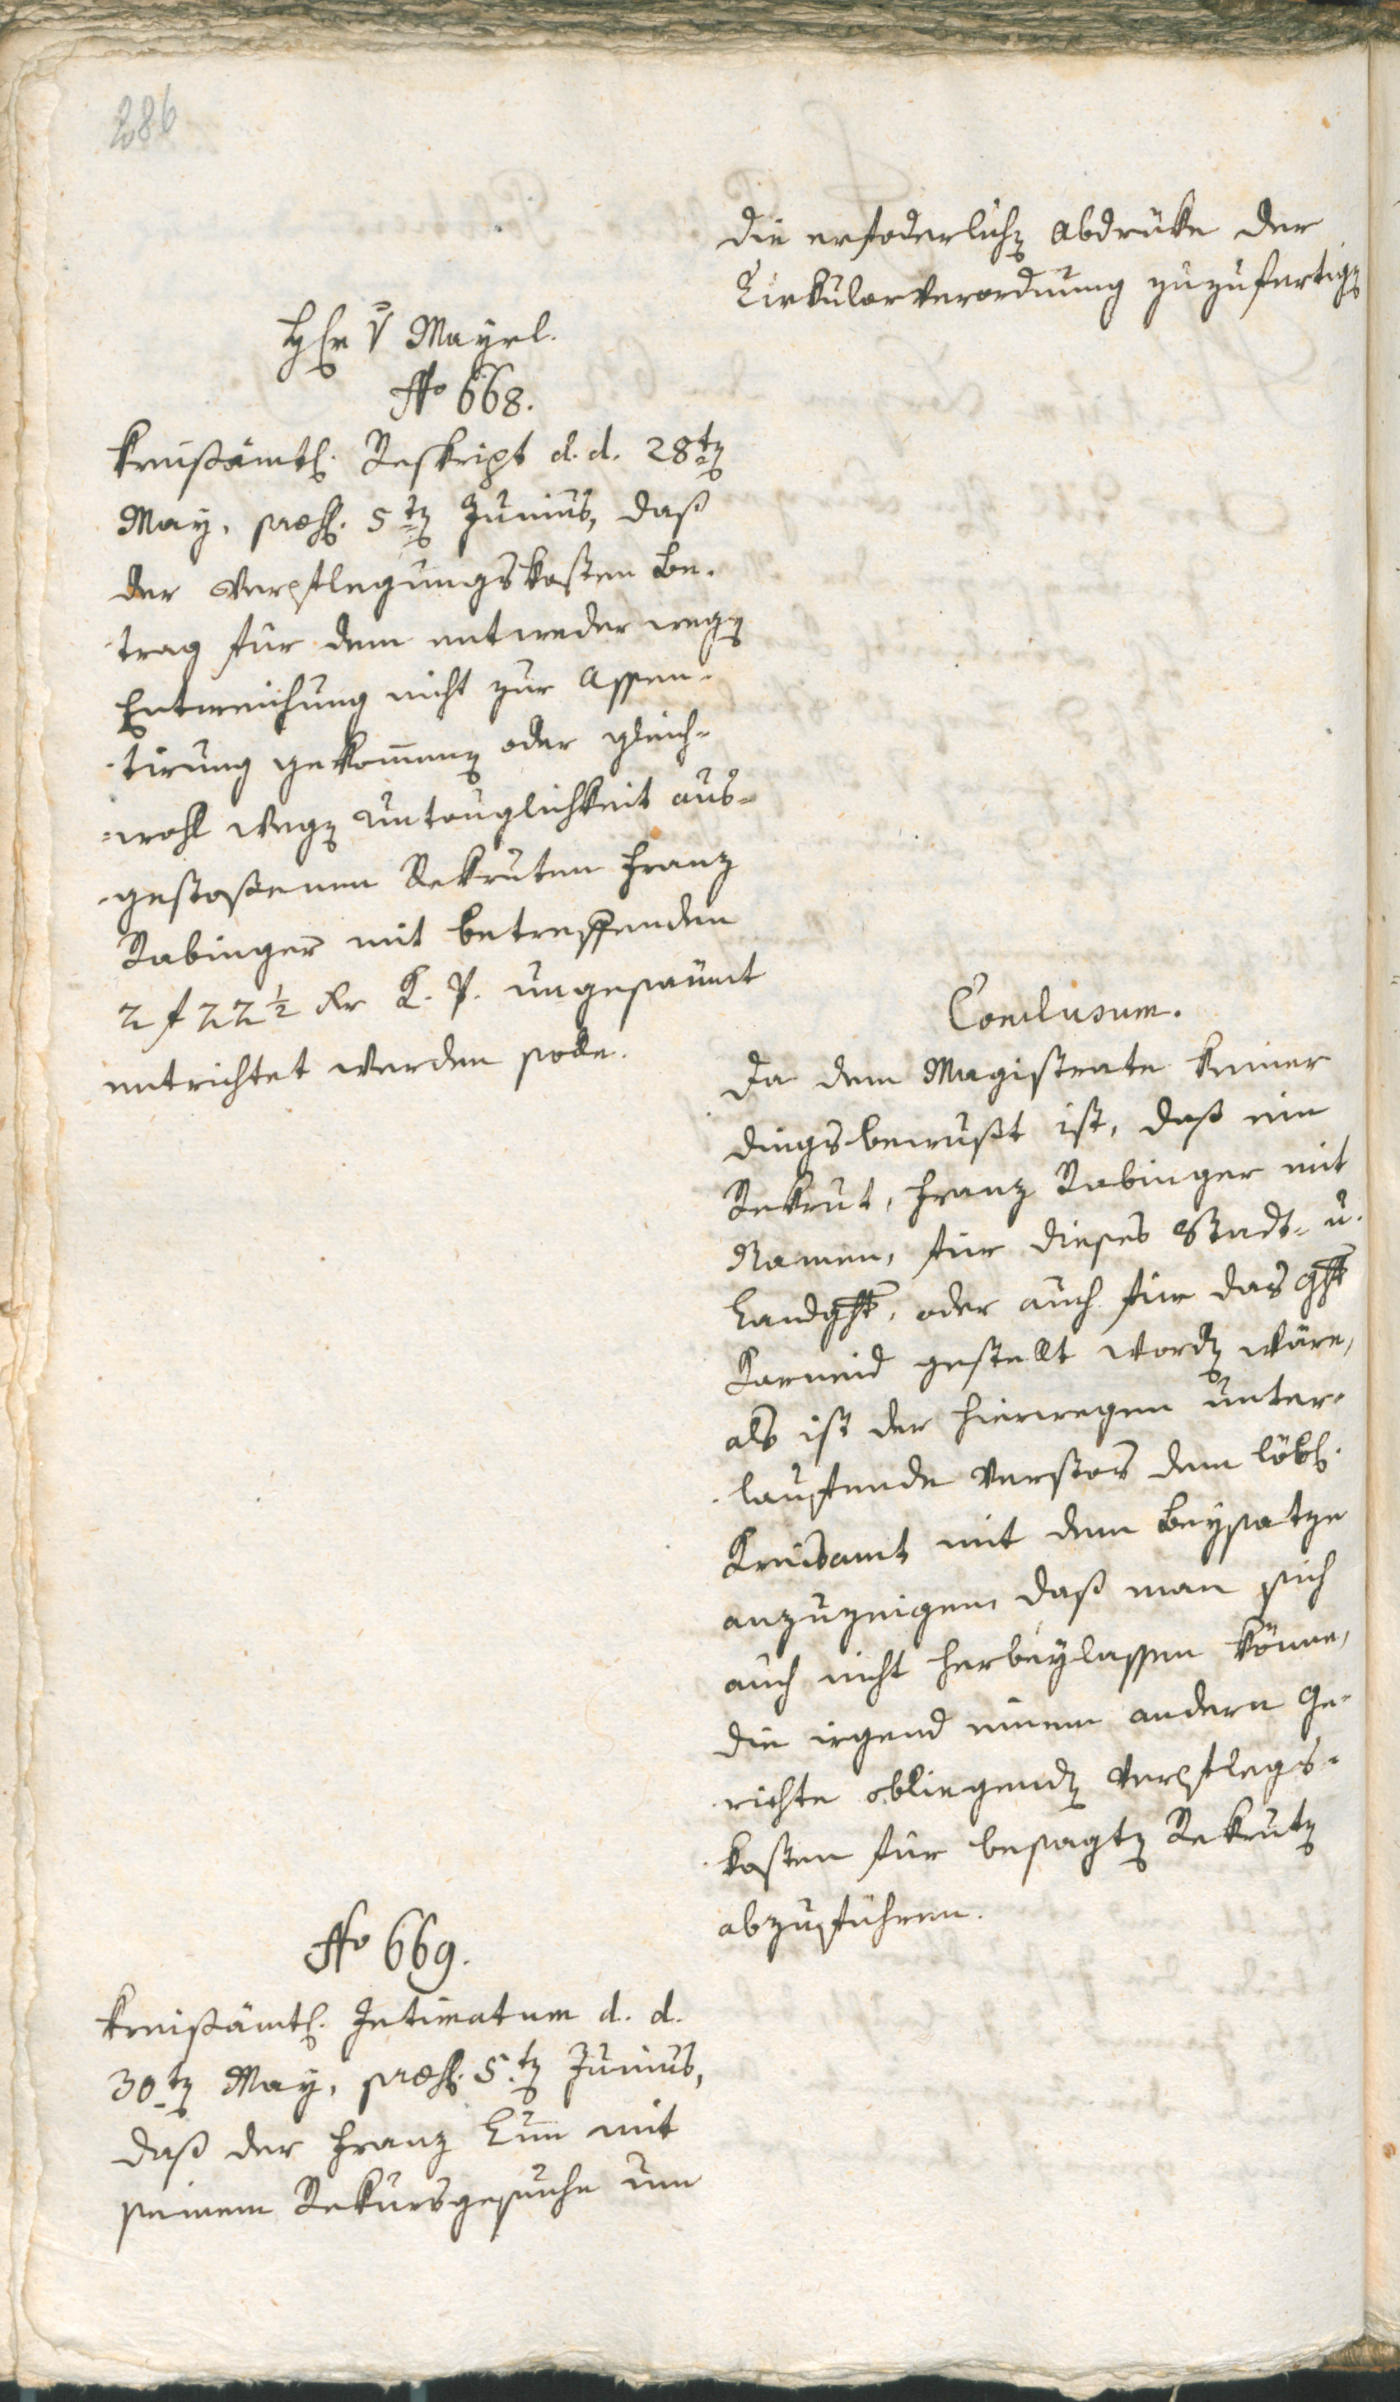 286
die erfoderlichen Abdrüke der
Cirkularverordnung zuzufertigen
H Hr v Mayrl.
No 668.
Kreisämtl. Reskript d. d. 28ten
May, præs. 5ten Junius, daß
der Verpflegungskosten Be-
trag für dem entweder wegen
Entweichung nicht zur Assen-
tirung gekommenen oder gleich-
wohl wegen Untauglichkeit aus-
gestossenen Rekruten Franz
Rabinger mit betreffenden
2 f 22 1/2 kr K. P. ungesäumt
entrichtet werden solle.
Conclusum.
Da dem Magistrate keiner
dings bewußt ist, daß ein
Rekrut, Franz Rabinger mit
Namen, für dieses Stadt- u.
Landght, oder auch für das Ght
Karneid gestellt worden wäre,
als ist der hierwegen unter-
lauffende Verstos dem löbl.
Kreisamt mit dem Beysatze
anzuzeigen, daß man sich
auch nicht herbeylassen könne,
die irgend einem andern Ge-
richte obliegenden Verpflegs-
kosten für besagten Rekruten
abzuführen.
No 669.
Kreisämtl. Intimatum d. d.
30ten May, præs. 5ten Junius,
daß der Franz Lun mit
seinem Rekursgesuche um